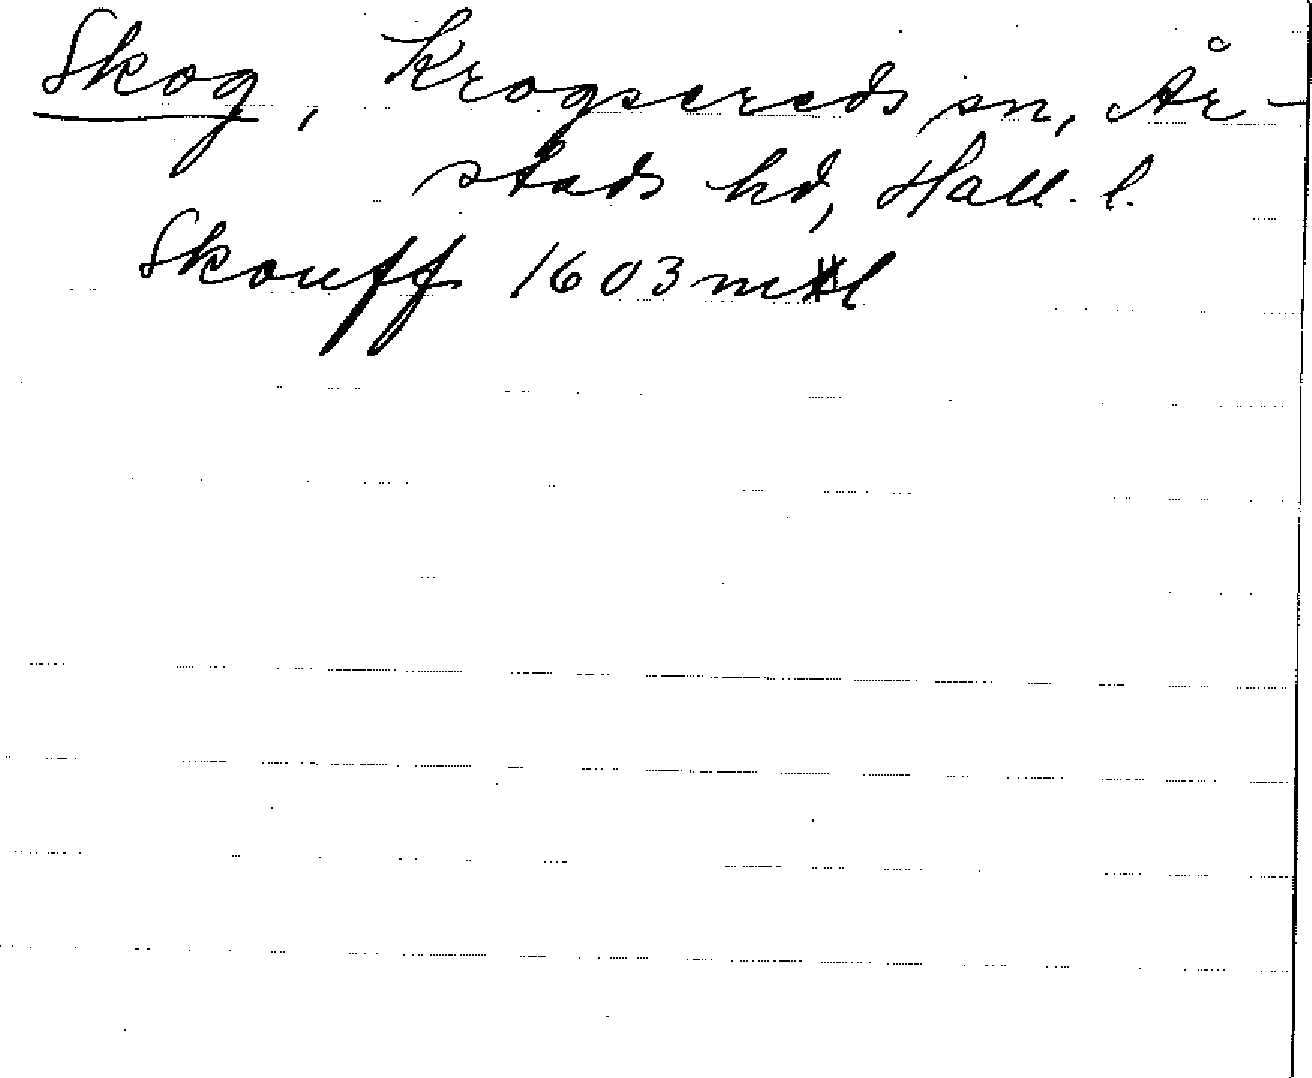 Skog, Krogsereds sn, År-
stads hd, Hall. l.
Skouff 1603 mtl